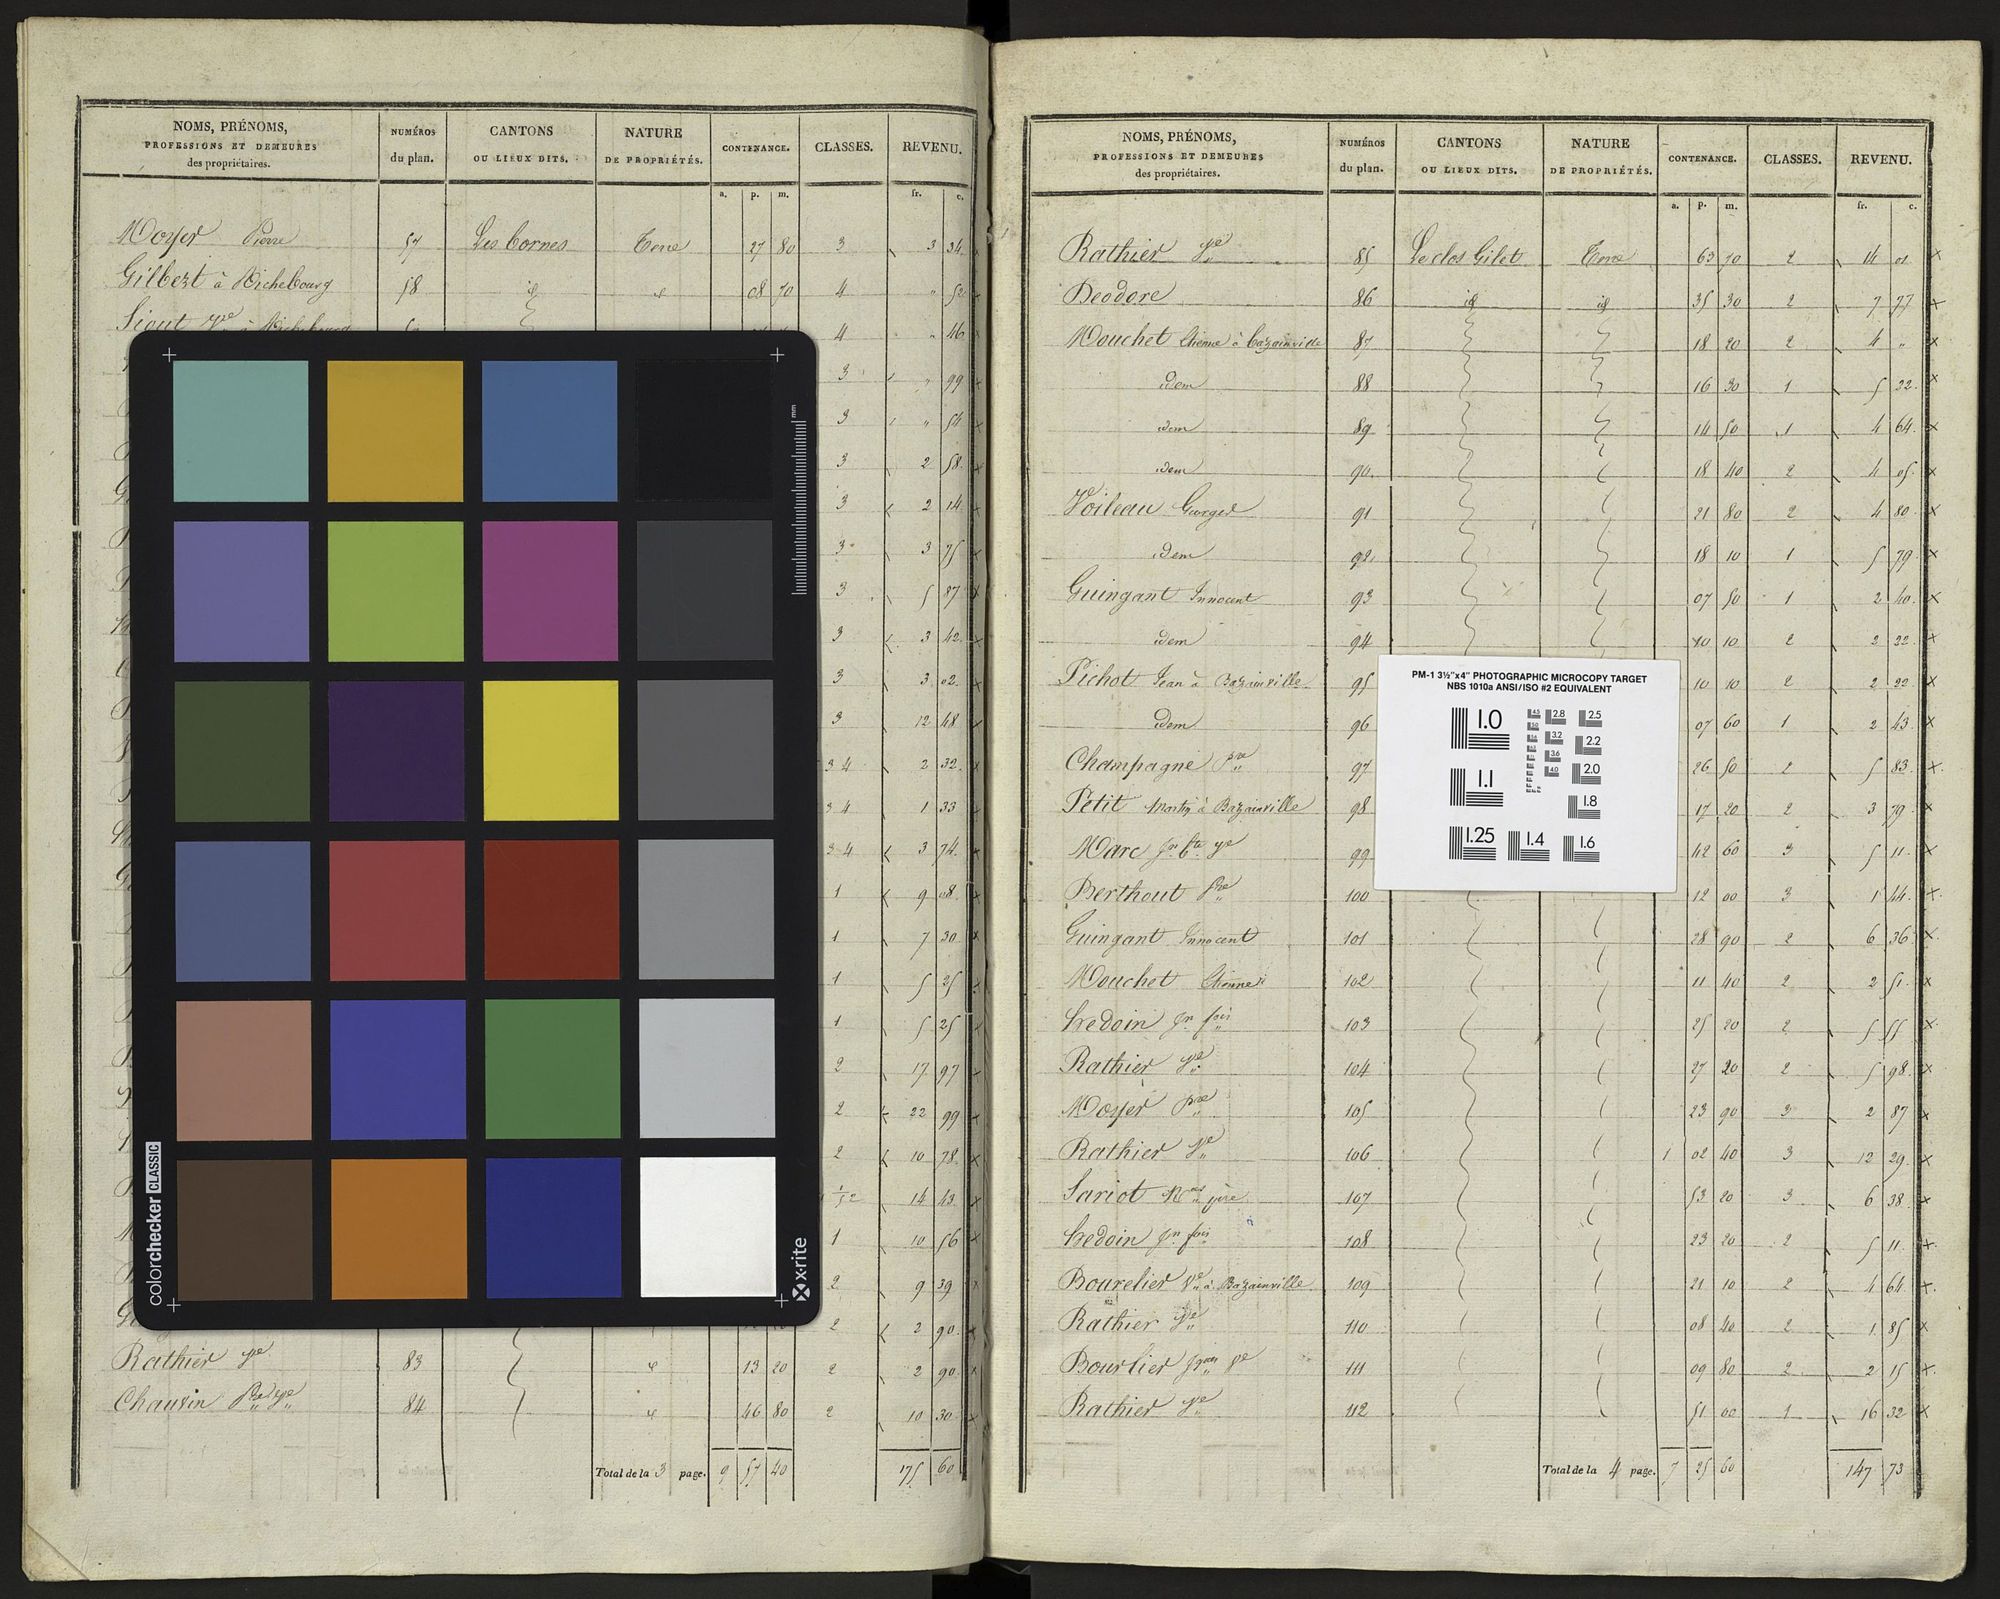 NOMS, PRÉNOMS, PROFESSIONS ET DEMEURES des propriétaires. NUMÉROS du plan. CANTONS OU LIEUX DITS. NATURE DE PROPRIÉTÉS. CONTENANCE. CLASSES. REVENU.
a. p. m. fr. c.
Moyer Pierre 57 Les Cornes Terre 27 80 3 3 34
Gilbert à Richebourg 58 id 08 70 4 " 52
4 " 46
3 " 99
3 " 54
3 2 58
3 2 14
3 3 75
3 5 87
3 3 42
3 3 02
3 12 48
3 4 2 32
3 4 1 33
3 4 3 74
1 9 08
1 7 30
1 5 25
1 5 25
2 17 97
2 22 99
2 10 78
14 43
1 10 56
2 9 39
2 2 90
Rathier 83 13 20 2 2 90
Chauvin 84 46 80 2 10 30
Total de la 3 page. 9 57 40 175 60
colorchecker CLASSIC
x-rite
mm
NOMS, PRÉNOMS, PROFESSIONS ET DEMEURES des propriétaires. NUMÉROS du plan. CANTONS OU LIEUX DITS. NATURE DE PROPRIÉTÉS. CONTENANCE. CLASSES. REVENU.
a. p. m. fr. c.
Rathier 85 Le clos Gilet Terre 63 70 2 14 01
Deodore 86 id id 35 30 2 7 77
Mouchet Etienne à Bazainville 87 18 20 2 4 "
idem 88 16 30 1 5 22
idem 89 14 50 1 4 64
idem 90 18 40 2 4 05
Voileau Georges 91 21 80 2 4 80
idem 92 18 10 1 5 79
Guingant Innocent 93 07 50 1 2 40
idem 94 10 10 2 2 22
Pichot Jean à Bazainville 95 10 10 2 2 22
idem 96 07 60 1 2 43
Champagne pre 97 26 50 2 5 83
Petit Martin à Bazainville 98 17 20 2 3 79
Marc 99 42 60 3 5 11
Berthout Pre 100 12 00 3 1 44
Guingant Innocent 101 28 90 2 6 36
Mouchet Etienne 102 11 40 2 2 51
Credoin jn fois 103 25 20 2 5 55
Rathier 104 27 20 2 5 98
Moyer pre 105 23 90 3 2 87
Rathier 106 1 02 40 3 12 29
Sariot père 107 53 20 3 6 38
Credoin jn fois 108 23 20 2 5 11
Bourelier Ve à Bazainville 109 21 10 2 4 64
Rathier 110 08 40 2 1 85
Bourlier 111 09 80 2 2 15
Rathier 112 51 00 1 16 32
Total de la 4 page. 7 25 60 147 73
PM-1 3½"x4" PHOTOGRAPHIC MICROCOPY TARGET
NBS 1010a ANSI/ISO #2 EQUIVALENT
1.0
1.1
1.25
1.4
1.6
1.8
2.0
2.2
2.5
2.8
3.2
3.6
4.0
4.5